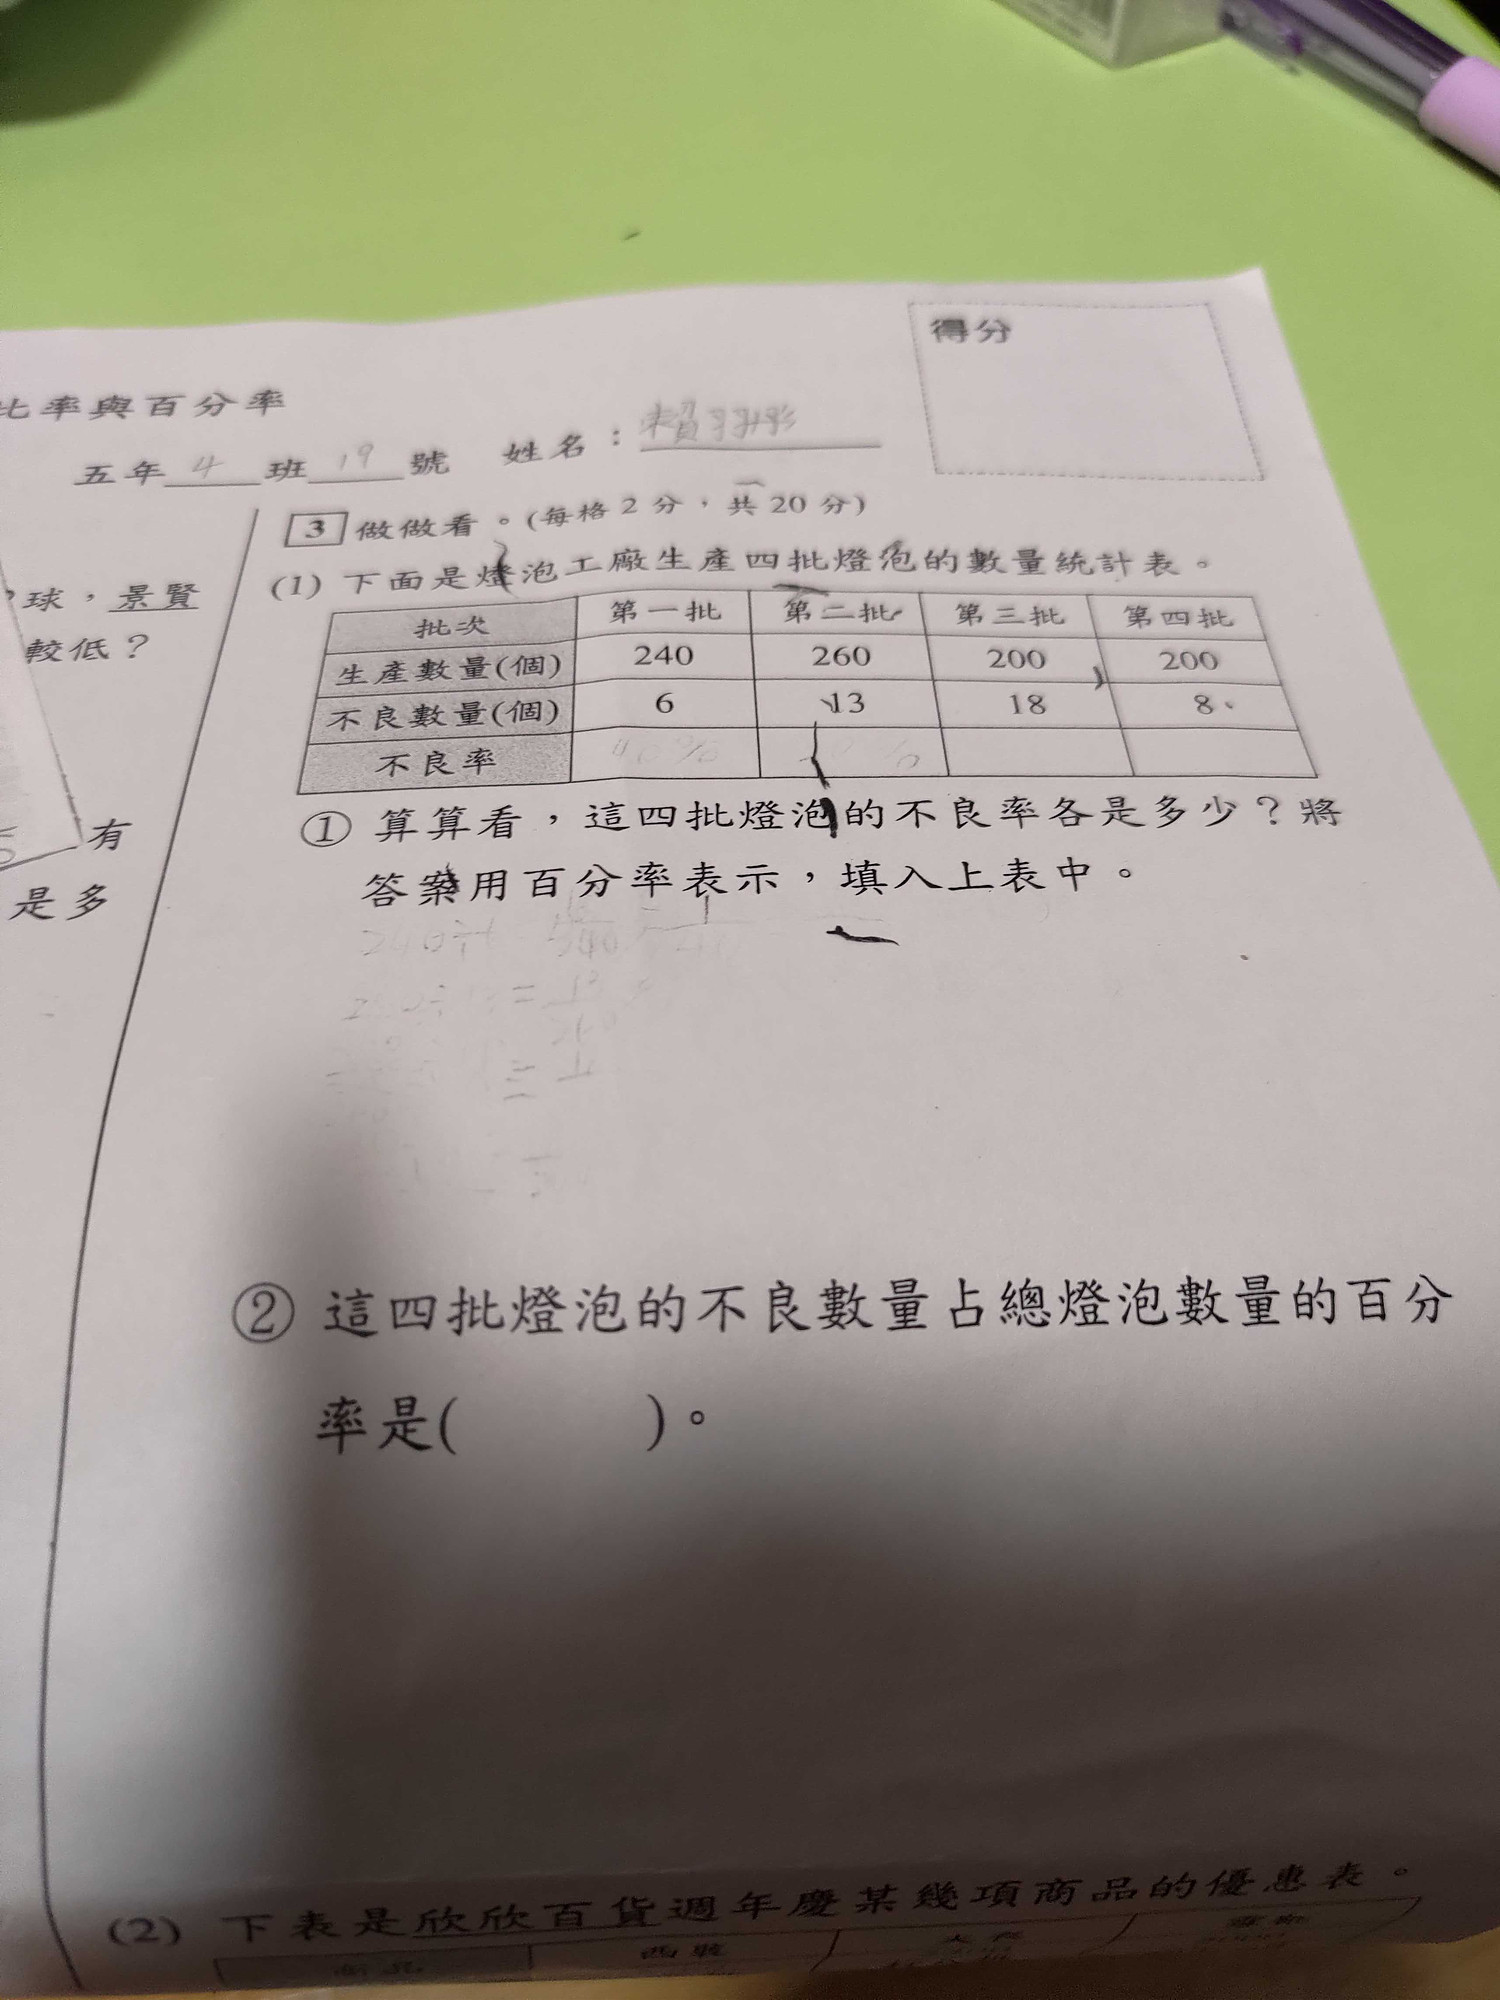 比率與百分率
得分
五年 4 班 19 號 姓名：賴羿彤
球，景賢
較低？
有
是多
3 做做看。(每格2分，共20分)
(1) 下面是燈泡工廠生產四批燈泡的數量統計表。
批次 第一批 第二批 第三批 第四批
生產數量(個) 240 260 200 200
不良數量(個) 6 13 18 8
不良率 40%
① 算算看，這四批燈泡的不良率各是多少？將
答案用百分率表示，填入上表中。
240÷
② 這四批燈泡的不良數量占總燈泡數量的百分
率是( )。
(2) 下表是欣欣百貨週年慶某幾項商品的優惠表。
西裝